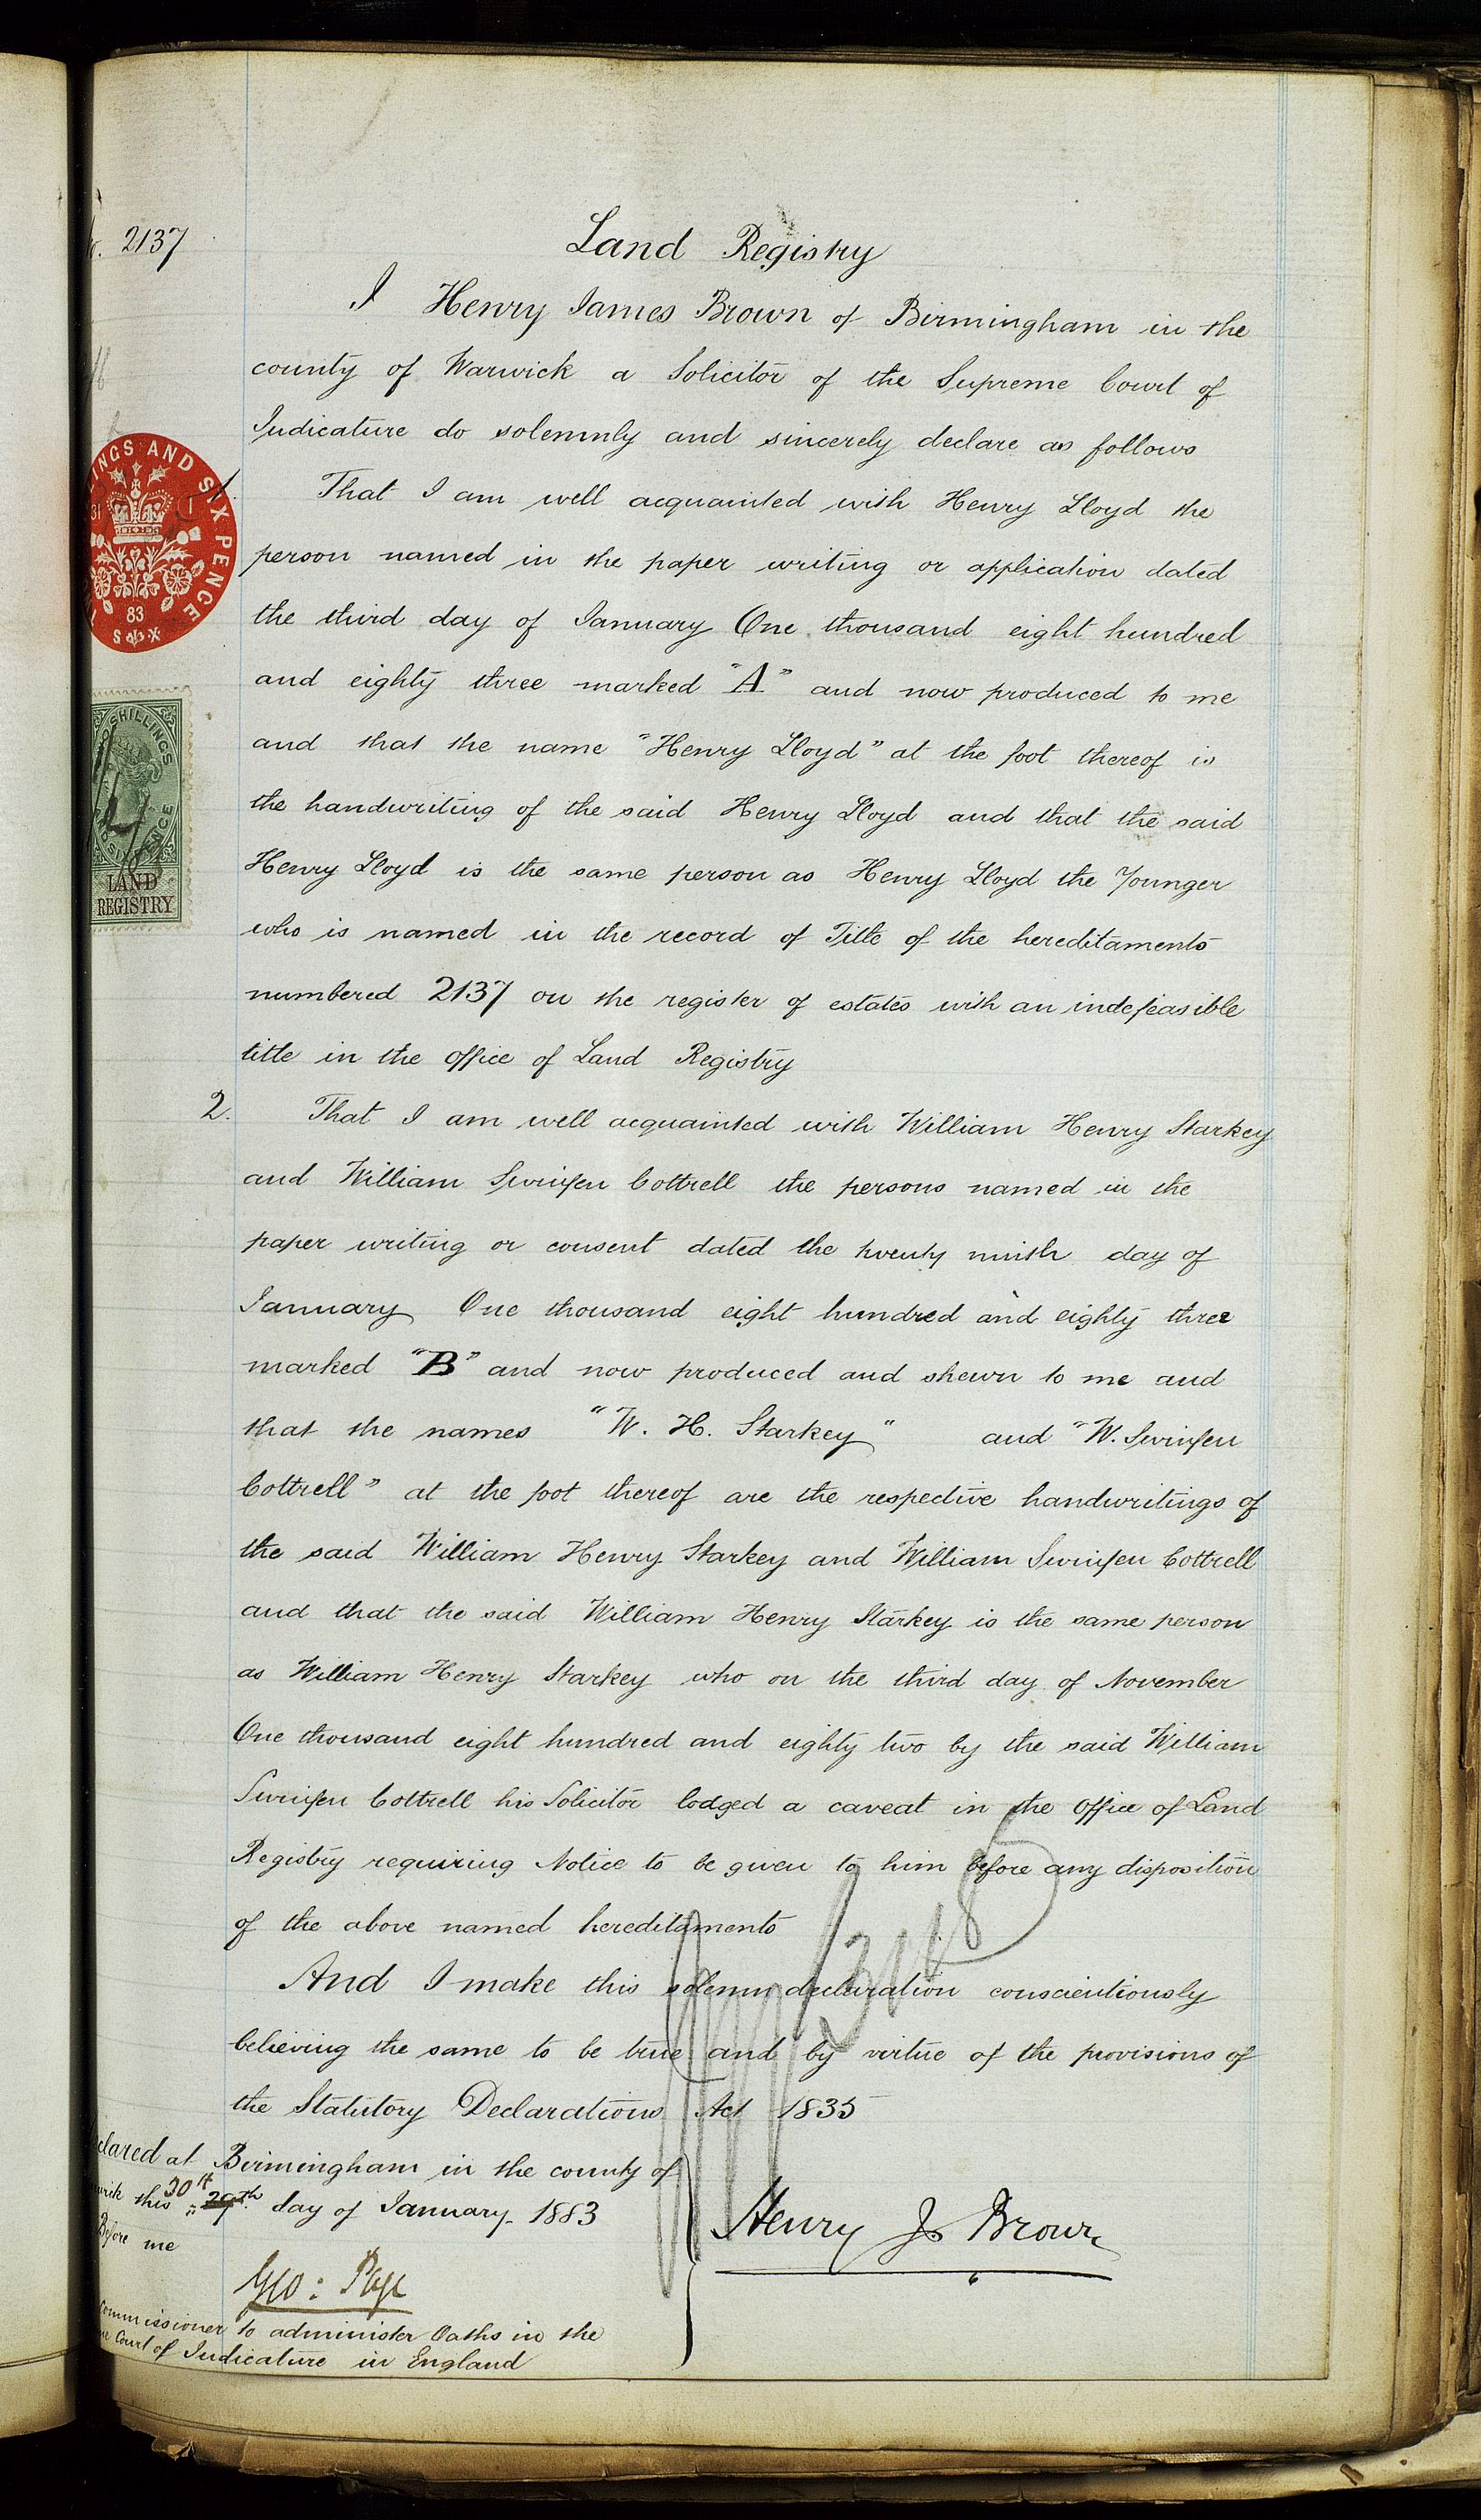 2137
Land Registry
I Henry James Brown of Birmingham in the
county of Warwick a Solicitor of the Supreme Court of
Judicature do solemnly and sincerely declare as follows
1. That I am well acquainted with Henry Lloyd the
person named in the paper writing or application dated
the third day of January One thousand eight hundred
and eighty three marked "A" and now produced to me
and that the name "Henry Lloyd" at the foot thereof is
the handwriting of the said Henry Lloyd and that the said
Henry Lloyd is the same person as Henry Lloyd the Younger
who is named in the record of Title of the hereditaments
numbered 2137 on the register of estates with an indefeasible
title in the office of Land Registry
2. That I am well acquainted with William Henry Starkey
and William Swinfen Cottrell the persons named in the
paper writing or consent dated the twenty ninth day of
January One thousand eight hundred and eighty three
marked "B" and now produced and shewn to me and
that the names "W. H. Starkey" and "W. Swinfen
Cottrell" at the foot thereof are the respective handwritings of
the said William Henry Starkey and William Swinfen Cottrell
and that the said William Henry Starkey is the same person
as William Henry Starkey who on the third day of November
One thousand eight hundred and eighty two by the said William
Swinfen Cottrell his Solicitor lodged a caveat in the office of Land
Registry requiring Notice to be given to him before any disposition
of the above named hereditaments
And I make this solemn declaration conscientiously
believing the same to be true and by virtue of the provisions of
the Statutory Declarations Act 1835
clared at Birmingham in the county of
wick this 30th 29th day of January 1883
Before me
Geo: Page
Commissioner to administer Oaths in the
Court of Judicature in England
Henry Js Brown
INGS AND SIX PENCE
31
1
83
SHILLINGS
SIX PENCE
LAND
REGISTRY